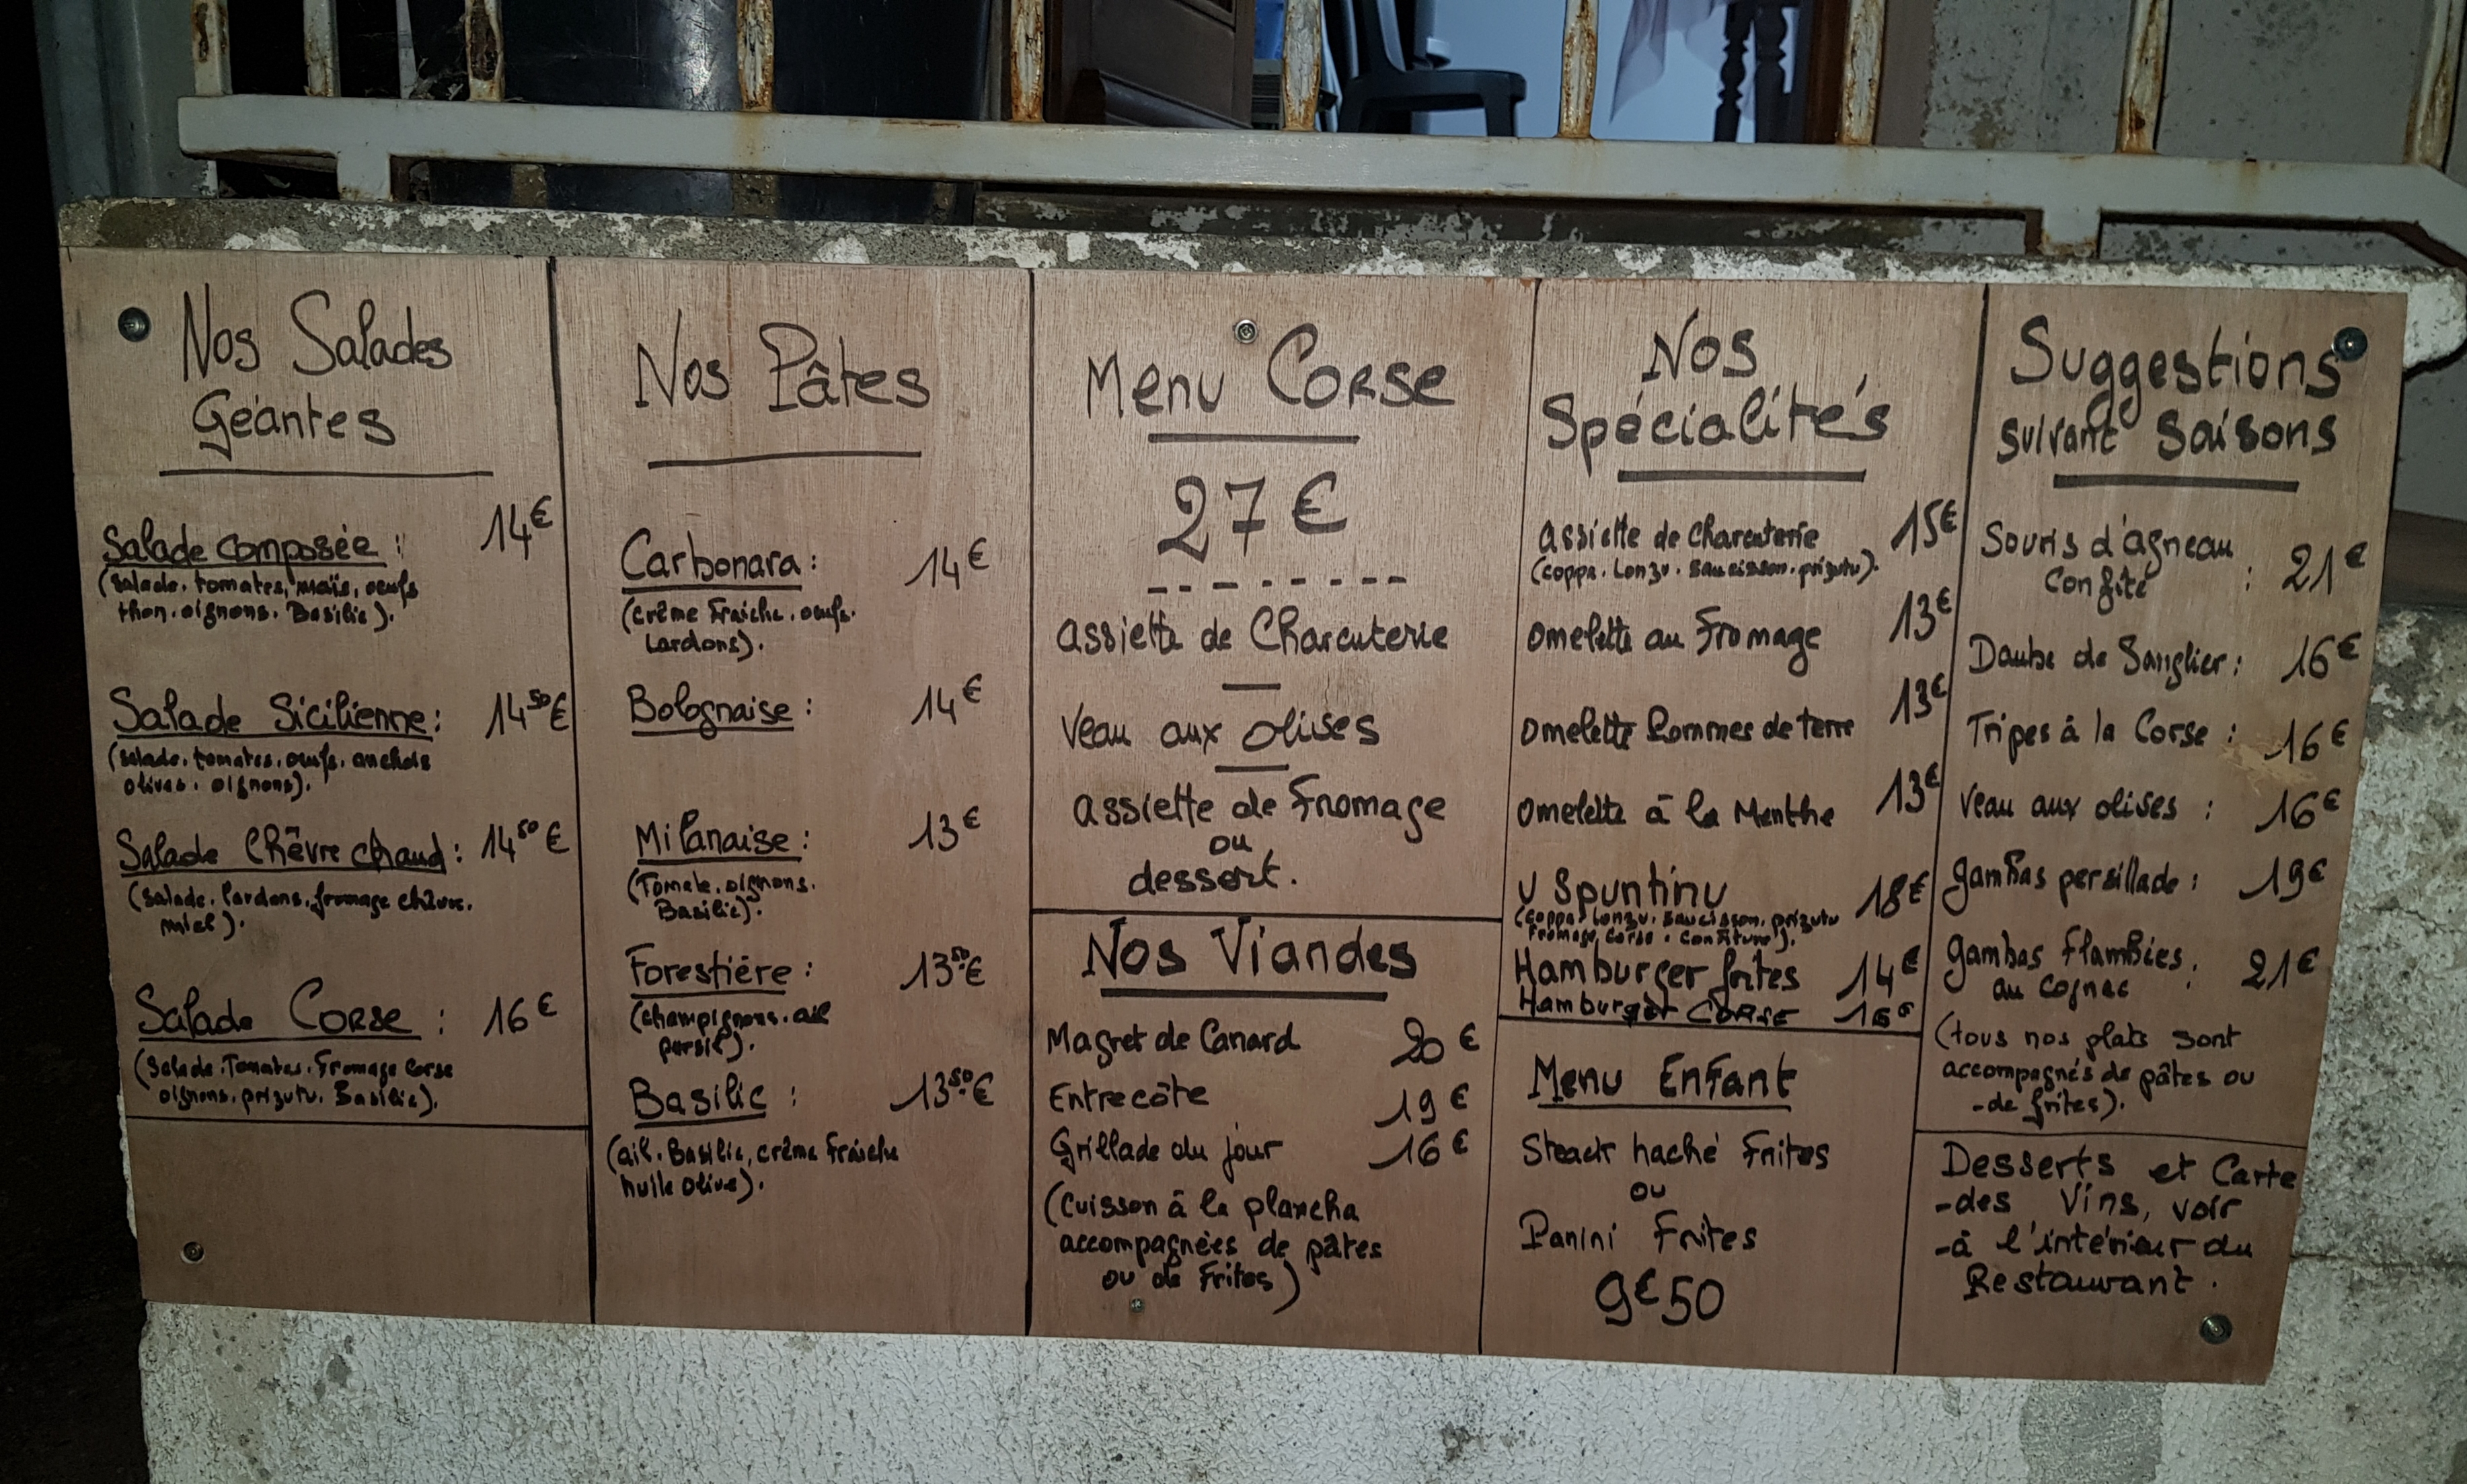 Nos Salades
Géantes
Salade composée : 14€
(Salade. tomates, maïs, oeufs
thon. oignons. Basilic).
Salade Sicilienne : 14⁵⁰€
(Salade. tomates. oeufs. anchois
olives. oignons).
Salade Chêvre chaud : 14⁵⁰€
(Salade. lardons. fromage chèvre.
miel).
Salade Corse : 16€
(Salade. Tomates. Fromage Corse
oignons. prizutu. Basilic).
Nos Pâtes
Carbonara : 14€
(crême Fraiche. oeufs.
Lardons).
Bolognaise : 14€
Milanaise : 13€
(Tomate. oignons.
Basilic).
Forestière : 13⁵⁰€
(champignons. ail
persil).
Basilic : 13⁵⁰€
(ail. Basilic, crême Fraiche
huile olive).
Menu Corse
27€
Assiette de Charcuterie
Veau aux olives
Assiette de Fromage
ou
dessert.
Nos Viandes
Magret de Canard 20€
Entrecôte 19€
Grillade du jour 16€
(Cuisson à la plancha
accompagnées de pâtes
ou de Frites)
Nos
Spécialités
Assiette de charcuterie 15€
(coppa. Lonzu. saucisson. prizutu).
Omelette au Fromage 13€
Omelette Pommes de terre 13€
Omelette à la Menthe 13€
U Spuntinu 18€
(coppa. Lonzu. saucisson. prizutu
Fromage Corse. Confiture).
Hamburger frites 14€
Hamburger Corse 16€
Menu Enfant
Steack haché Frites
ou
Panini Frites
9€50
Suggestions
suivant saisons
Souris d'agneau
Confite : 21€
Daube de Sanglier : 16€
Tripes à la Corse : 16€
Veau aux olives : 16€
gambas persillade : 19€
gambas Flambées
au Cognac : 21€
(tous nos plats sont
accompagnés de pâtes ou
-de frites).
Desserts et Carte
-des Vins, voir
-à l'intérieur du
Restaurant.